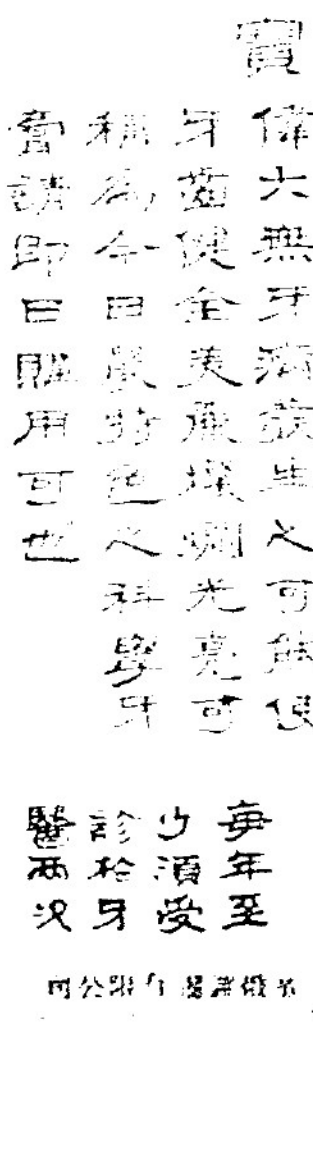 寶
無牙病發生之可能使
牙齒健全美麗燦爛光亮可
稱為今日最特色之科學牙
膏請即日購用可也
每年至
少須受
診於牙
醫兩次
有限公司